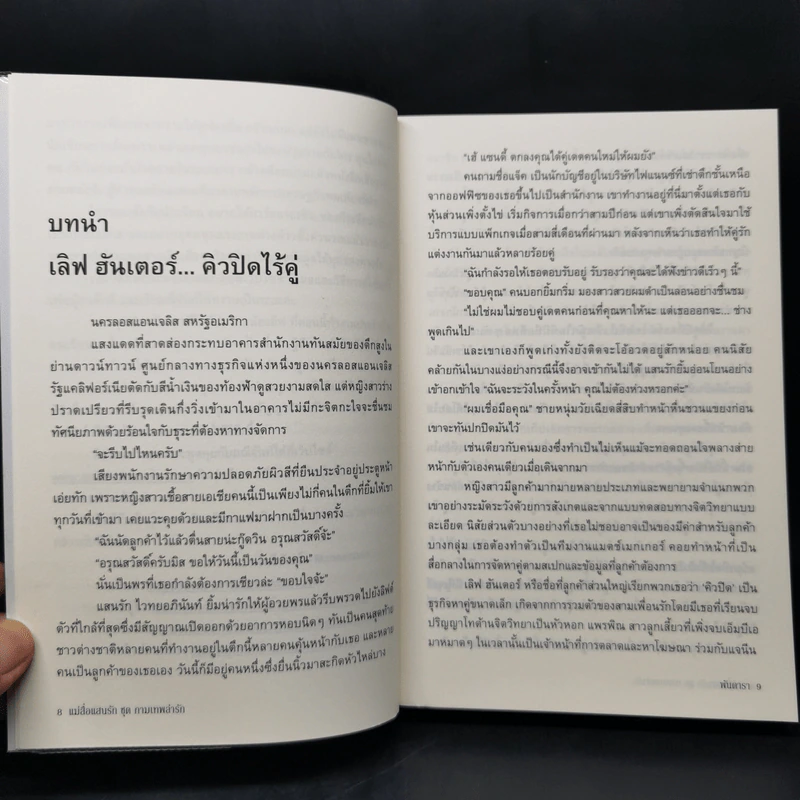 บทนำ
เลิฟ ฮันเตอร์... คิวปิดไร้คู่
นครลอสแอนเจลิส สหรัฐอเมริกา
แสงแดดที่สาดส่องกระทบอาคารสำนักงานทันสมัยของตึกสูงใน
ย่านดาวน์ทาวน์ ศูนย์กลางทางธุรกิจแห่งหนึ่งของนครลอสแอนเจลิส
รัฐแคลิฟอร์เนียตัดกับสีน้ำเงินของท้องฟ้าดูสวยงามสดใส แต่หญิงสาวร่าง
ปราดเปรียวที่รีบรุดเดินกึ่งวิ่งเข้ามาในอาคารไม่มีกะจิตกะใจจะชื่นชม
ทัศนียภาพด้วยร้อนใจกับธุระที่ต้องหาทางจัดการ
“จะรีบไปไหนครับ”
เสียงพนักงานรักษาความปลอดภัยผิวสีที่ยืนประจำอยู่ประตูหน้า
เอ่ยทัก เพราะหญิงสาวเชื้อสายเอเชียคนนี้เป็นเพียงไม่กี่คนในตึกที่ยิ้มให้เขา
ทุกวันที่เข้ามา เคยแวะคุยด้วยและมีกาแฟมาฝากเป็นบางครั้ง
“ฉันนัดลูกค้าไว้แล้วตื่นสายน่ะกู๊ดวิน อรุณสวัสดิ์จ้ะ”
“อรุณสวัสดิ์ครับมิส ขอให้วันนี้เป็นวันของคุณ”
นั่นเป็นพรที่เธอกำลังต้องการเชียวล่ะ “ขอบใจจ้ะ”
แสนรัก ไวทยอภินันท์ ยิ้มน่ารักให้ผู้อวยพรแล้วรีบพรวดไปยังลิฟต์
ตัวที่ใกล้ที่สุดซึ่งมีสัญญาณเปิดออกด้วยอาการหอบนิดๆ ทันเป็นคนสุดท้าย
ชาวต่างชาติหลายคนที่ทำงานอยู่ในตึกนี้หลายคนคุ้นหน้ากับเธอ และหลาย
คนเป็นลูกค้าของเธอเอง วันนี้ก็มีอยู่คนหนึ่งซึ่งยื่นนิ้วมาสะกิดหัวไหล่บาง
8 แม่สื่อแสนรัก ชุด กามเทพล่ารัก
“เฮ้ แซนดี้ ตกลงคุณได้คู่เดตคนใหม่ให้ผมยัง”
คนถามชื่อแจ็ค เป็นนักบัญชีอยู่ในบริษัทไฟแนนซ์ที่เช่าตึกชั้นเหนือ
จากออฟฟิซของเธอขึ้นไปเป็นสำนักงาน เขาทำงานอยู่ที่นี่มาตั้งแต่เธอกับ
หุ้นส่วนเพิ่งตั้งไข่ เริ่มกิจการเมื่อกว่าสามปีก่อน แต่เขาเพิ่งตัดสินใจมาใช้
บริการแบบแพ็กเกจเมื่อสามสี่เดือนที่ผ่านมา หลังจากเห็นว่าเธอทำให้คู่รัก
แต่งงานกันมาแล้วหลายร้อยคู่
“ฉันกำลังรอให้เธอตอบรับอยู่ รับรองว่าคุณจะได้ฟังข่าวดีเร็วๆ นี้”
“ขอบคุณ” คนบอกยิ้มกริ่ม มองสาวสวยผมดำเป็นลอนอย่างชื่นชม
“ไม่ใช่ผมไม่ชอบคู่เดตคนก่อนที่คุณหาให้นะ แต่เธอออกจะ... ช่าง
พูดเกินไป”
และเขาเองก็พูดเก่งทั้งยังติดจะโอ้อวดอยู่สักหน่อย คนนิสัย
คล้ายกันในบางแง่บางอย่างกรณีนี้จึงอาจเข้ากันไม่ได้ แสนรักยิ้มอ่อนโยนอย่าง
เอาอกเอาใจ “ฉันจะระวังในครั้งหน้า คุณไม่ต้องห่วงหรอกค่ะ”
“ผมเชื่อมือคุณ” ชายหนุ่มวัยเฉียดสี่สิบทำหน้าหื่นชวนแขยงก่อน
เขาจะทันปกปิดมันไว้
เช่นเดียวกับคนมองซึ่งทำเป็นไม่เห็นแม้จะทอดถอนใจพลางส่าย
หน้ากับตัวเองคนเดียวเมื่อเดินจากมา
หญิงสาวมีลูกค้ามากมายหลายประเภทและพยายามจำแนกพวก
เขาอย่างระมัดระวังด้วยการสังเกตและจากแบบทดสอบทางจิตวิทยาแบบ
ละเอียด นิสัยส่วนตัวบางอย่างที่เธอไม่ชอบอาจเป็นของมีค่าสำหรับลูกค้า
บางกลุ่ม เธอต้องทำตัวเป็นทีมงานแมตช์เมกเกอร์ คอยทำหน้าที่เป็น
สื่อกลางในการจัดหาคู่ตามสเปกและข้อมูลที่ลูกค้าต้องการ
เลิฟ ฮันเตอร์ หรือชื่อที่ลูกค้าส่วนใหญ่เรียกพวกเธอว่า ‘คิวปิด’ เป็น
ธุรกิจหาคู่ขนาดเล็ก เกิดจากการรวมตัวของสามเพื่อนรักโดยมีเธอที่เรียนจบ
ปริญญาโทด้านจิตวิทยาเป็นหัวหอก แพรพิณ สาวลูกเสี้ยวที่เพิ่งจบเอ็มบีเอ
มาหมาดๆ ในเวลานั้นเป็นเจ้าหน้าที่การตลาดและหาโฆษณา ร่วมกับแจนีน
พันดารา 9